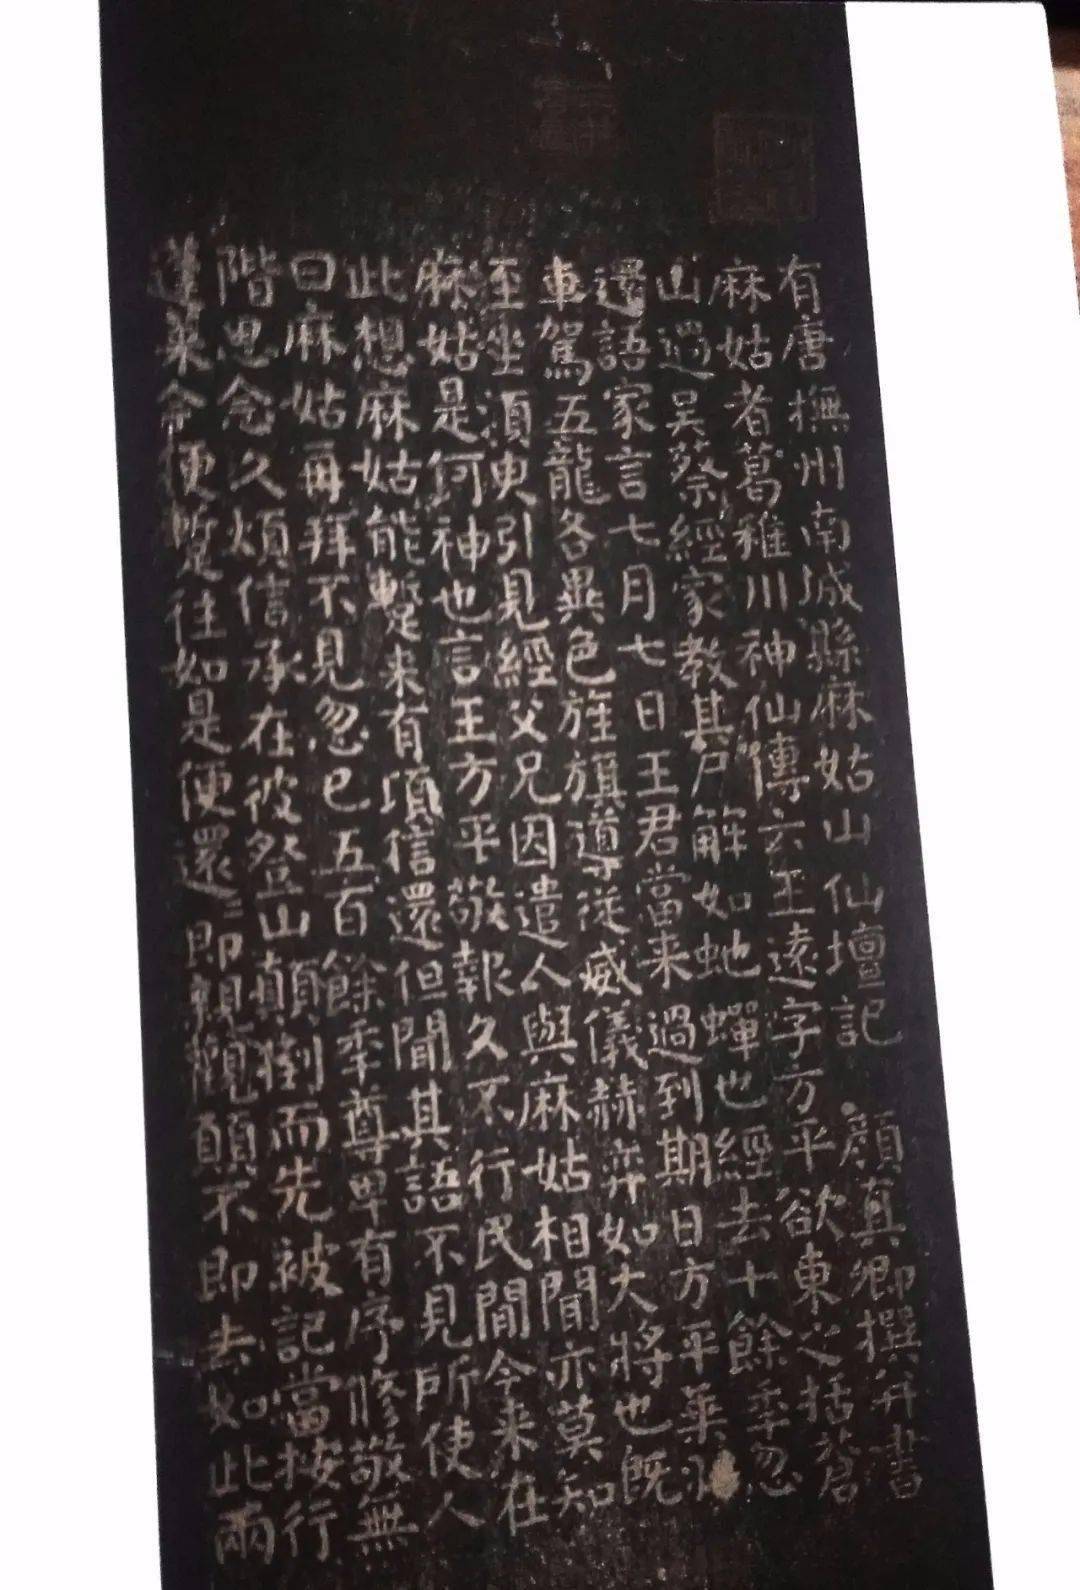 有唐撫州南城縣麻姑山仙壇記 顏真卿撰并書
麻姑者葛稚川神仙傳云王遠字方平欲東之括蒼
山過吳蔡經家教其尸解如虵蟬也經去十餘年忽
還語家言七月七日王君當来過到期日方平乗
車駕五龍各異色旌旗導従威儀赫弈如大將也既
至坐須臾引見經父兄因遣人與麻姑相聞亦莫知
麻姑是何神也言王方平敬報久不行民間今来在
此想麻姑能蹔来有頃信還但聞其語不見所使人
曰麻姑再拜不見忽已五百餘年尊卑有序修敬無
階思念久煩信承在彼登山顛倒而先被記當按行
蓬萊今便蹔往如是便還還即親覲願不即去如此兩